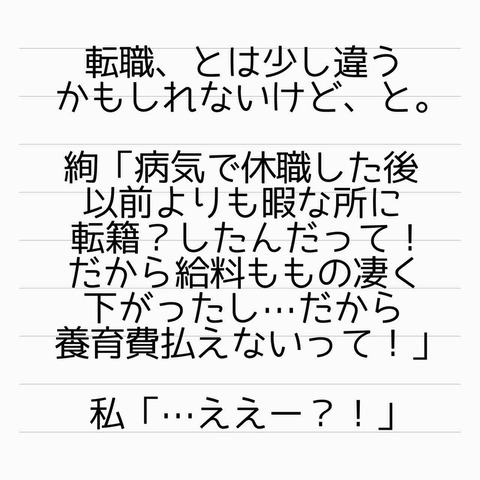 転職、とは少し違う
かもしれないけど、と。
絢「病気で休職した後
以前よりも暇な所に
転籍？したんだって！
だから給料ももの凄く
下がったし…だから
養育費払えないって！」
私「…ええー？！」